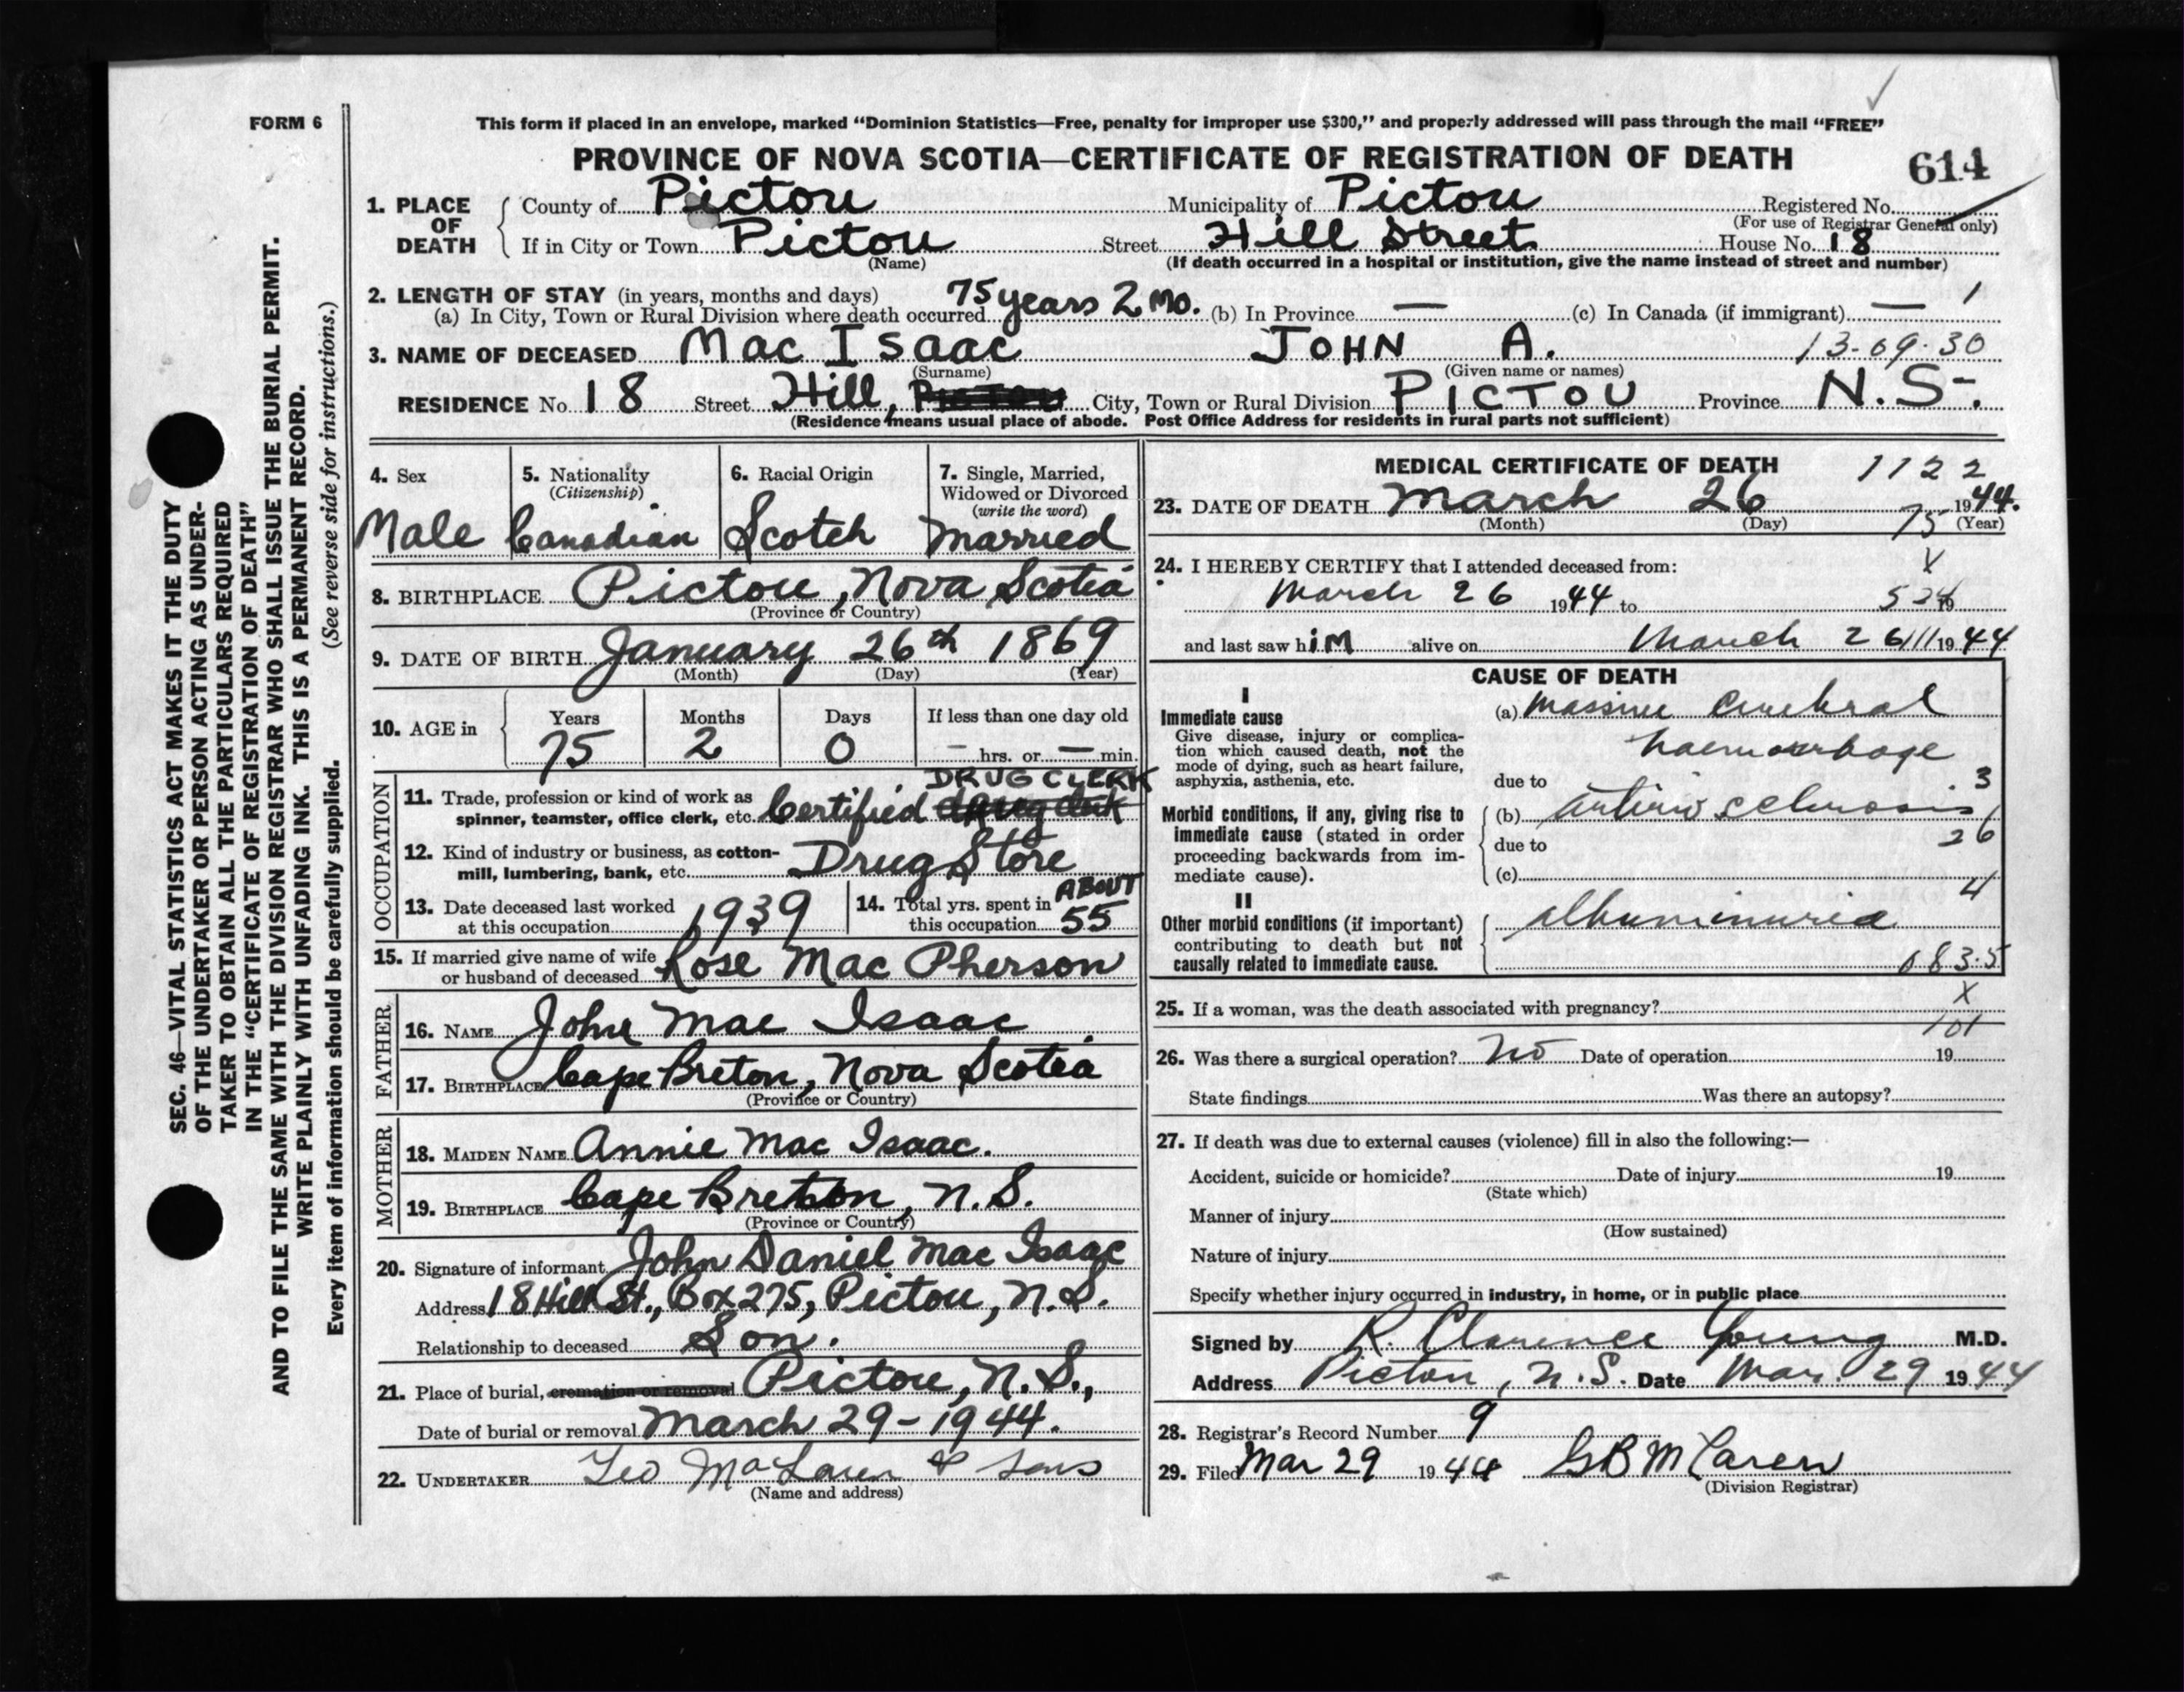 FORM 6
This form if placed in an envelope, marked “Dominion Statistics—Free, penalty for improper use $300,” and properly addressed will pass through the mail “FREE”
PROVINCE OF NOVA SCOTIA—CERTIFICATE OF REGISTRATION OF DEATH
614
1. PLACE OF DEATH
County of Pictou Municipality of Pictou Registered No.
(For use of Registrar General only)
If in City or Town Pictou Street Hill Street House No. 18
(Name) (If death occurred in a hospital or institution, give the name instead of street and number)
2. LENGTH OF STAY (in years, months and days)
(a) In City, Town or Rural Division where death occurred 75 years 2 Mo. (b) In Province — (c) In Canada (if immigrant) — 1
3. NAME OF DECEASED Mac Isaac JOHN A. 13-09-30
(Surname) (Given name or names)
RESIDENCE No. 18 Street Hill, Pictou City, Town or Rural Division PICTOU Province N.S.
(Residence means usual place of abode. Post Office Address for residents in rural parts not sufficient)
4. Sex 5. Nationality (Citizenship) 6. Racial Origin 7. Single, Married, Widowed or Divorced (write the word)
Male Canadian Scotch Married
8. BIRTHPLACE Pictou, Nova Scotia
(Province or Country)
9. DATE OF BIRTH January 26th 1869
(Month) (Day) (Year)
10. AGE in Years Months Days If less than one day old
75 2 0 — hrs. or — min.
OCCUPATION
DRUG CLERK
11. Trade, profession or kind of work as spinner, teamster, office clerk, etc. Certified drug clerk
12. Kind of industry or business, as cotton-mill, lumbering, bank, etc. Drug Store
13. Date deceased last worked at this occupation 1939
14. Total yrs. spent in this occupation ABOUT 55
15. If married give name of wife or husband of deceased Rose Mac Pherson
FATHER
16. NAME John Mac Isaac
17. BIRTHPLACE Cape Breton, Nova Scotia
(Province or Country)
MOTHER
18. MAIDEN NAME Annie Mac Isaac.
19. BIRTHPLACE Cape Breton, N.S.
(Province or Country)
20. Signature of informant John Daniel Mac Isaac
Address 18 Hill St., Box 275, Pictou, N.S.
Relationship to deceased Son.
21. Place of burial, cremation or removal Pictou, N.S.,
Date of burial or removal March 29-1944.
22. UNDERTAKER Geo McLaren & Sons
(Name and address)
MEDICAL CERTIFICATE OF DEATH 1122
23. DATE OF DEATH March 26 1944.
(Month) (Day) 75 (Year)
24. I HEREBY CERTIFY that I attended deceased from: X
March 26 1944 to 19
and last saw him alive on March 26 1944
CAUSE OF DEATH
I
Immediate cause
Give disease, injury or complication which caused death, not the mode of dying, such as heart failure, asphyxia, asthenia, etc.
(a) Massive Cerebral
haemorrhage
due to 3
Morbid conditions, if any, giving rise to immediate cause (stated in order proceeding backwards from immediate cause).
(b) arterio sclerosis
due to 26
(c)
4
II
Other morbid conditions (if important) contributing to death but not causally related to immediate cause.
albuminuria
083.5
25. If a woman, was the death associated with pregnancy? X
101
26. Was there a surgical operation? No Date of operation 19
State findings Was there an autopsy?
27. If death was due to external causes (violence) fill in also the following:—
Accident, suicide or homicide? Date of injury 19
(State which)
Manner of injury
(How sustained)
Nature of injury
Specify whether injury occurred in industry, in home, or in public place
Signed by R. Clarence Young M.D.
Address Pictou, N.S. Date Mar. 29 1944
28. Registrar's Record Number 9
29. Filed Mar 29 1944 G B McLaren
(Division Registrar)
SEC. 46—VITAL STATISTICS ACT MAKES IT THE DUTY
OF THE UNDERTAKER OR PERSON ACTING AS UNDER-
TAKER TO OBTAIN ALL THE PARTICULARS REQUIRED
IN THE “CERTIFICATE OF REGISTRATION OF DEATH”
AND TO FILE THE SAME WITH THE DIVISION REGISTRAR WHO SHALL ISSUE THE BURIAL PERMIT.
WRITE PLAINLY WITH UNFADING INK. THIS IS A PERMANENT RECORD.
Every item of information should be carefully supplied. (See reverse side for instructions.)